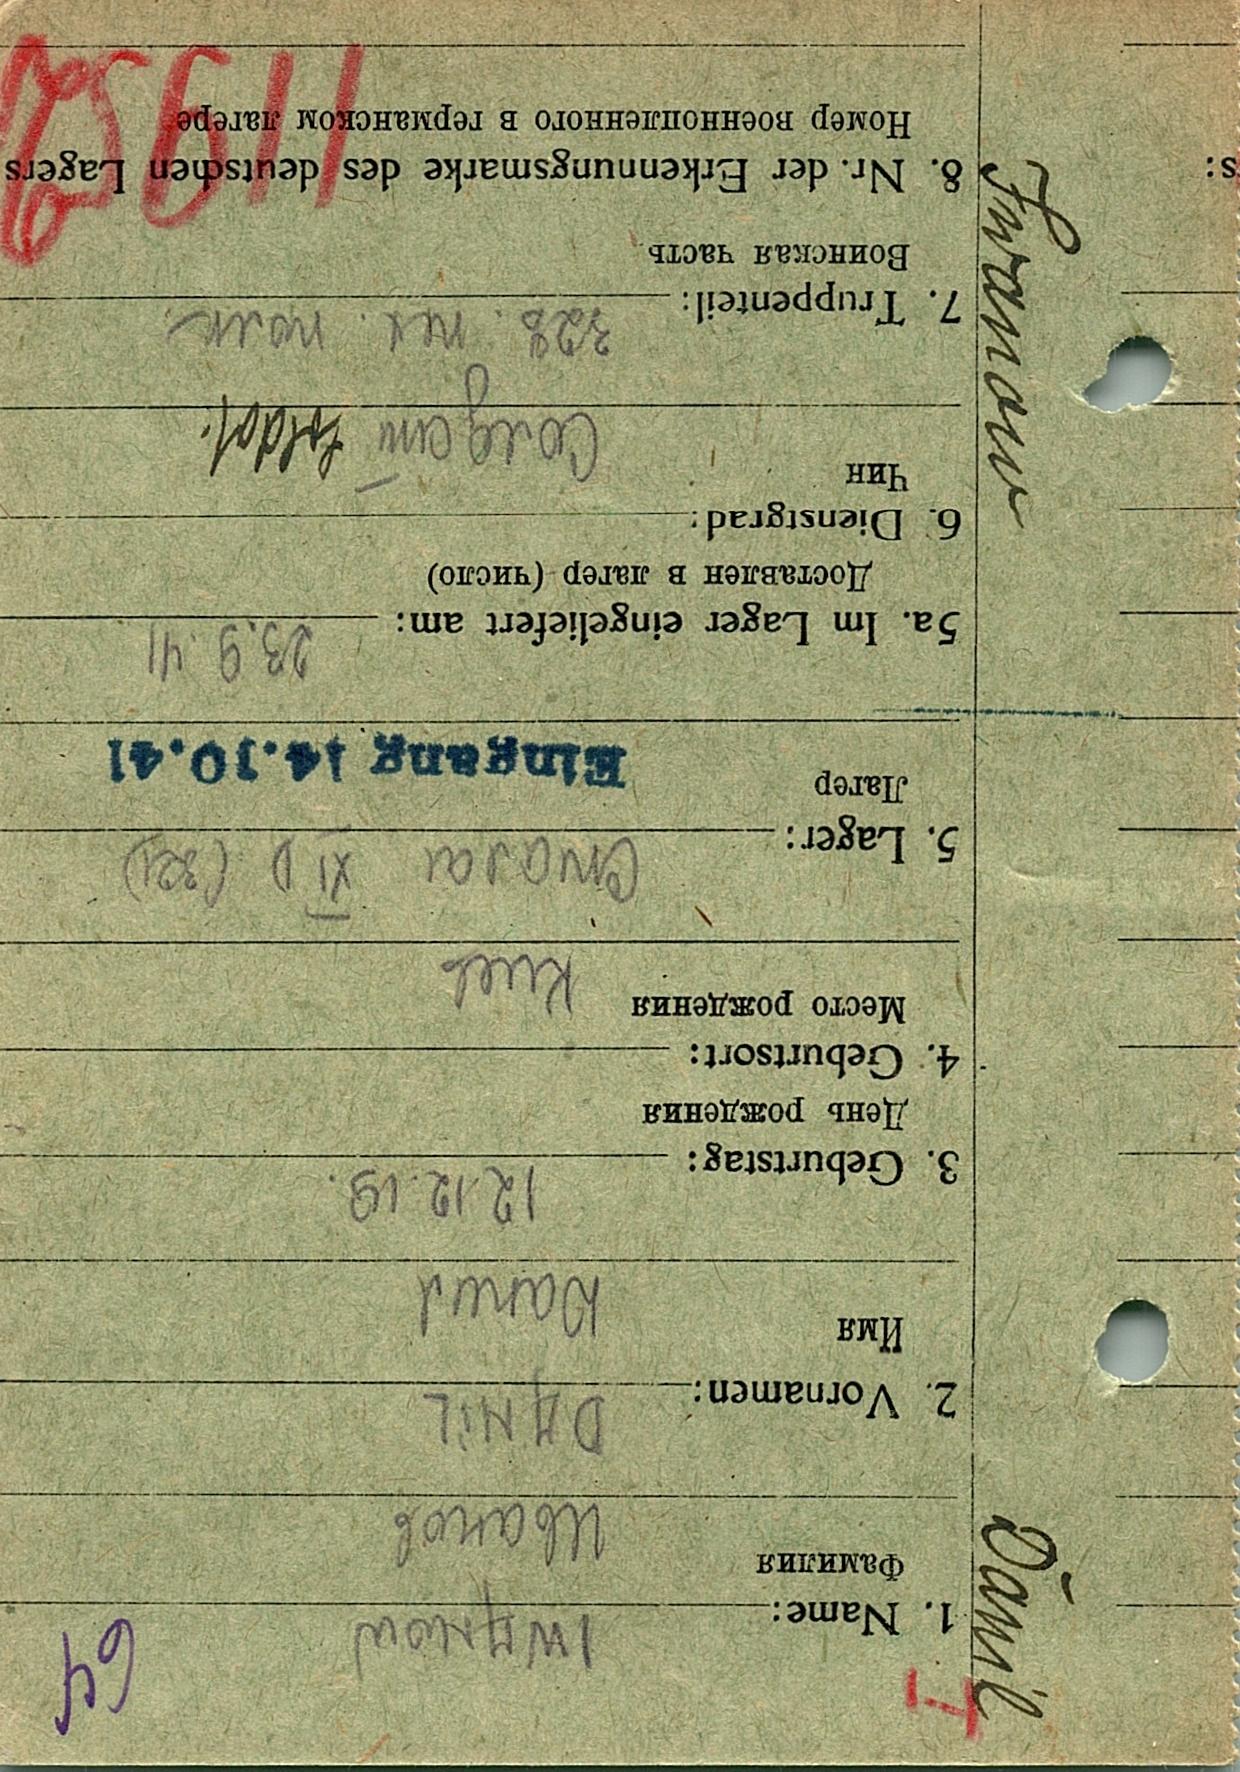 64
I
1. Name: IWANOW
Фамилия Иванов
2. Vornamen: DANiL
Имя Данил
3. Geburtstag: 12.12.19.
День рождения
4. Geburtsort:
Место рождения Киев
5. Lager: Сталаг XI D (321)
Лагер
Eingang 14.10.41
5a. Im Lager eingeliefert am: 23.9.41
Доставлен в лагер (число)
6. Dienstgrad:
Чин Солдат Soldat.
7. Truppenteil: 328. пех. полк.
Воинская часть
8. Nr. der Erkennungsmarke des deutschen Lagers
Номер военнопленного в германском лагере
Iwanow
Danil
s: